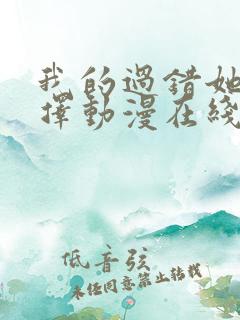 我的過錯她
擇動漫在綫
低音弦
未经同意禁止转载